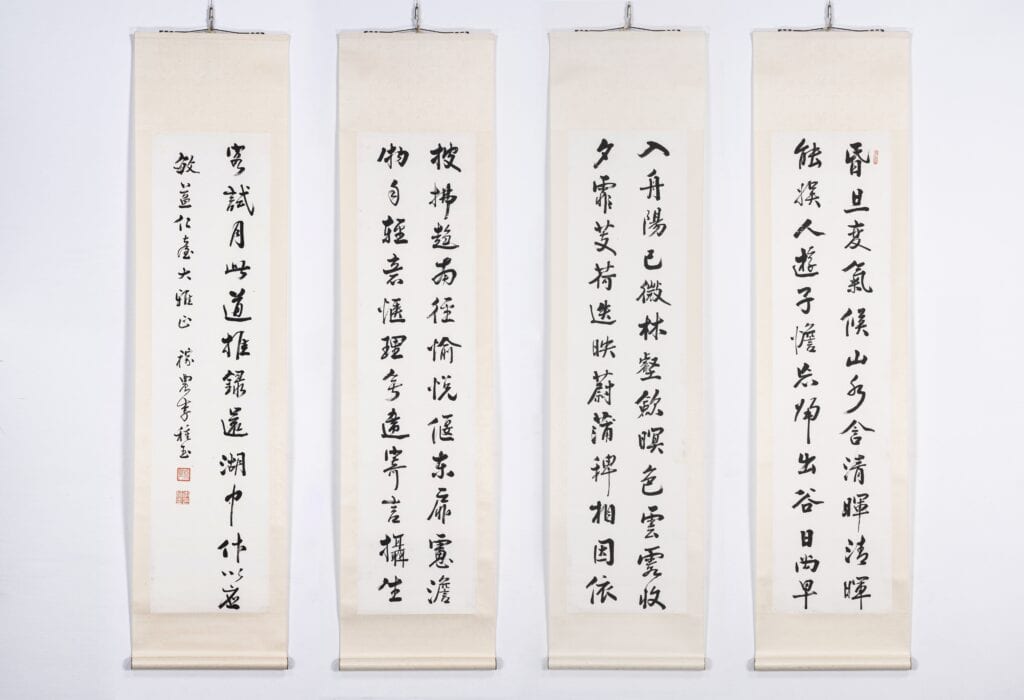 昏旦變氣候山水含清暉清暉
能娛人遊子憺忘歸出谷日尚早
入舟陽已微林壑斂暝色雲霞收
夕霏芰荷迭映蔚蒲稗相因依
披拂趨南徑愉悅偃東扉慮澹
物自輕意愜理無違寄言攝生
客試用此道推錄還湖中作以應
敏仁臺大雅正 稼農李種玉